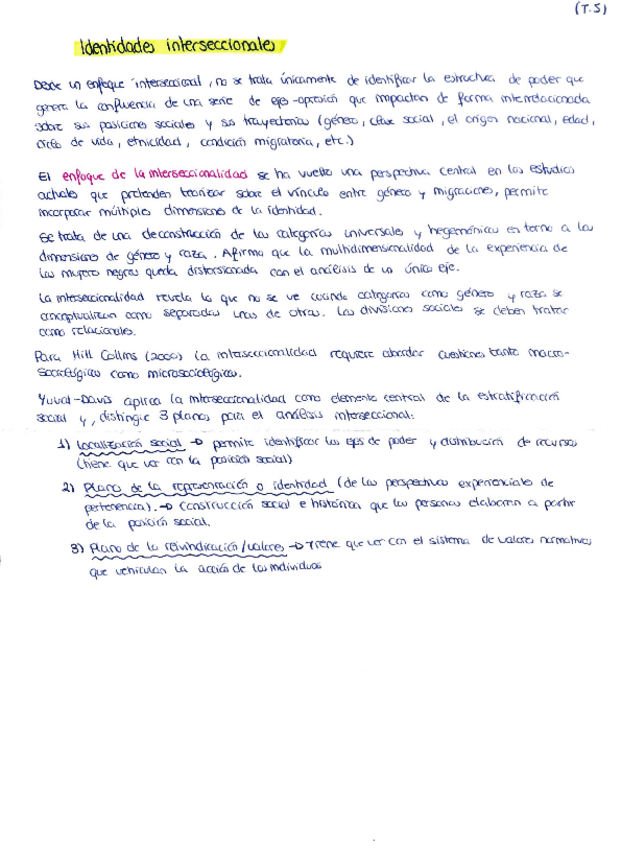 (T.5)
Identidades interseccionales
Desde un enfoque interseccional, no se trata únicamente de identificar la estructura de poder que
genera la confluencia de una serie de ejes-opresión que impactan de forma interrelacionada
sobre sus posiciones sociales y sus trayectorias (género, clase social, el origen nacional, edad,
ciclo de vida, etnicidad, condición migratoria, etc.)
El enfoque de la interseccionalidad se ha vuelto una perspectiva central en los estudios
actuales que pretenden teorizar sobre el vínculo entre género y migraciones, permite
incorporar múltiples dimensiones de la identidad.
Se trata de una deconstrucción de las categorías universales y hegemónicas en torno a las
dimensiones de género y raza. Afirma que la multidimensionalidad de la experiencia de
las mujeres negras queda distorsionada con el análisis de un único eje.
La interseccionalidad revela lo que no se ve cuando categorías como género y raza se
conceptualizan como separadas unas de otras. Las divisiones sociales se deben tratar
como relacionales.
Para Hill Collins (2000) la interseccionalidad requiere abordar cuestiones tanto macro-
sociológicas como microsociológicas.
Yuval-Davis aplica la interseccionalidad como elemento central de la estratificación
social y, distingue 3 planos para el análisis interseccional:
1) Localización social → permite identificar los ejes de poder y distribución de recursos
(tiene que ver con la posición social)
2) Plano de la representación o identidad (de las perspectivas experienciales de
pertenencia). → Construcción social e histórica que las personas elaboran a partir
de la posición social.
3) Plano de la reivindicación/valores → Tiene que ver con el sistema de valores normativos
que vehiculan la acción de los individuos